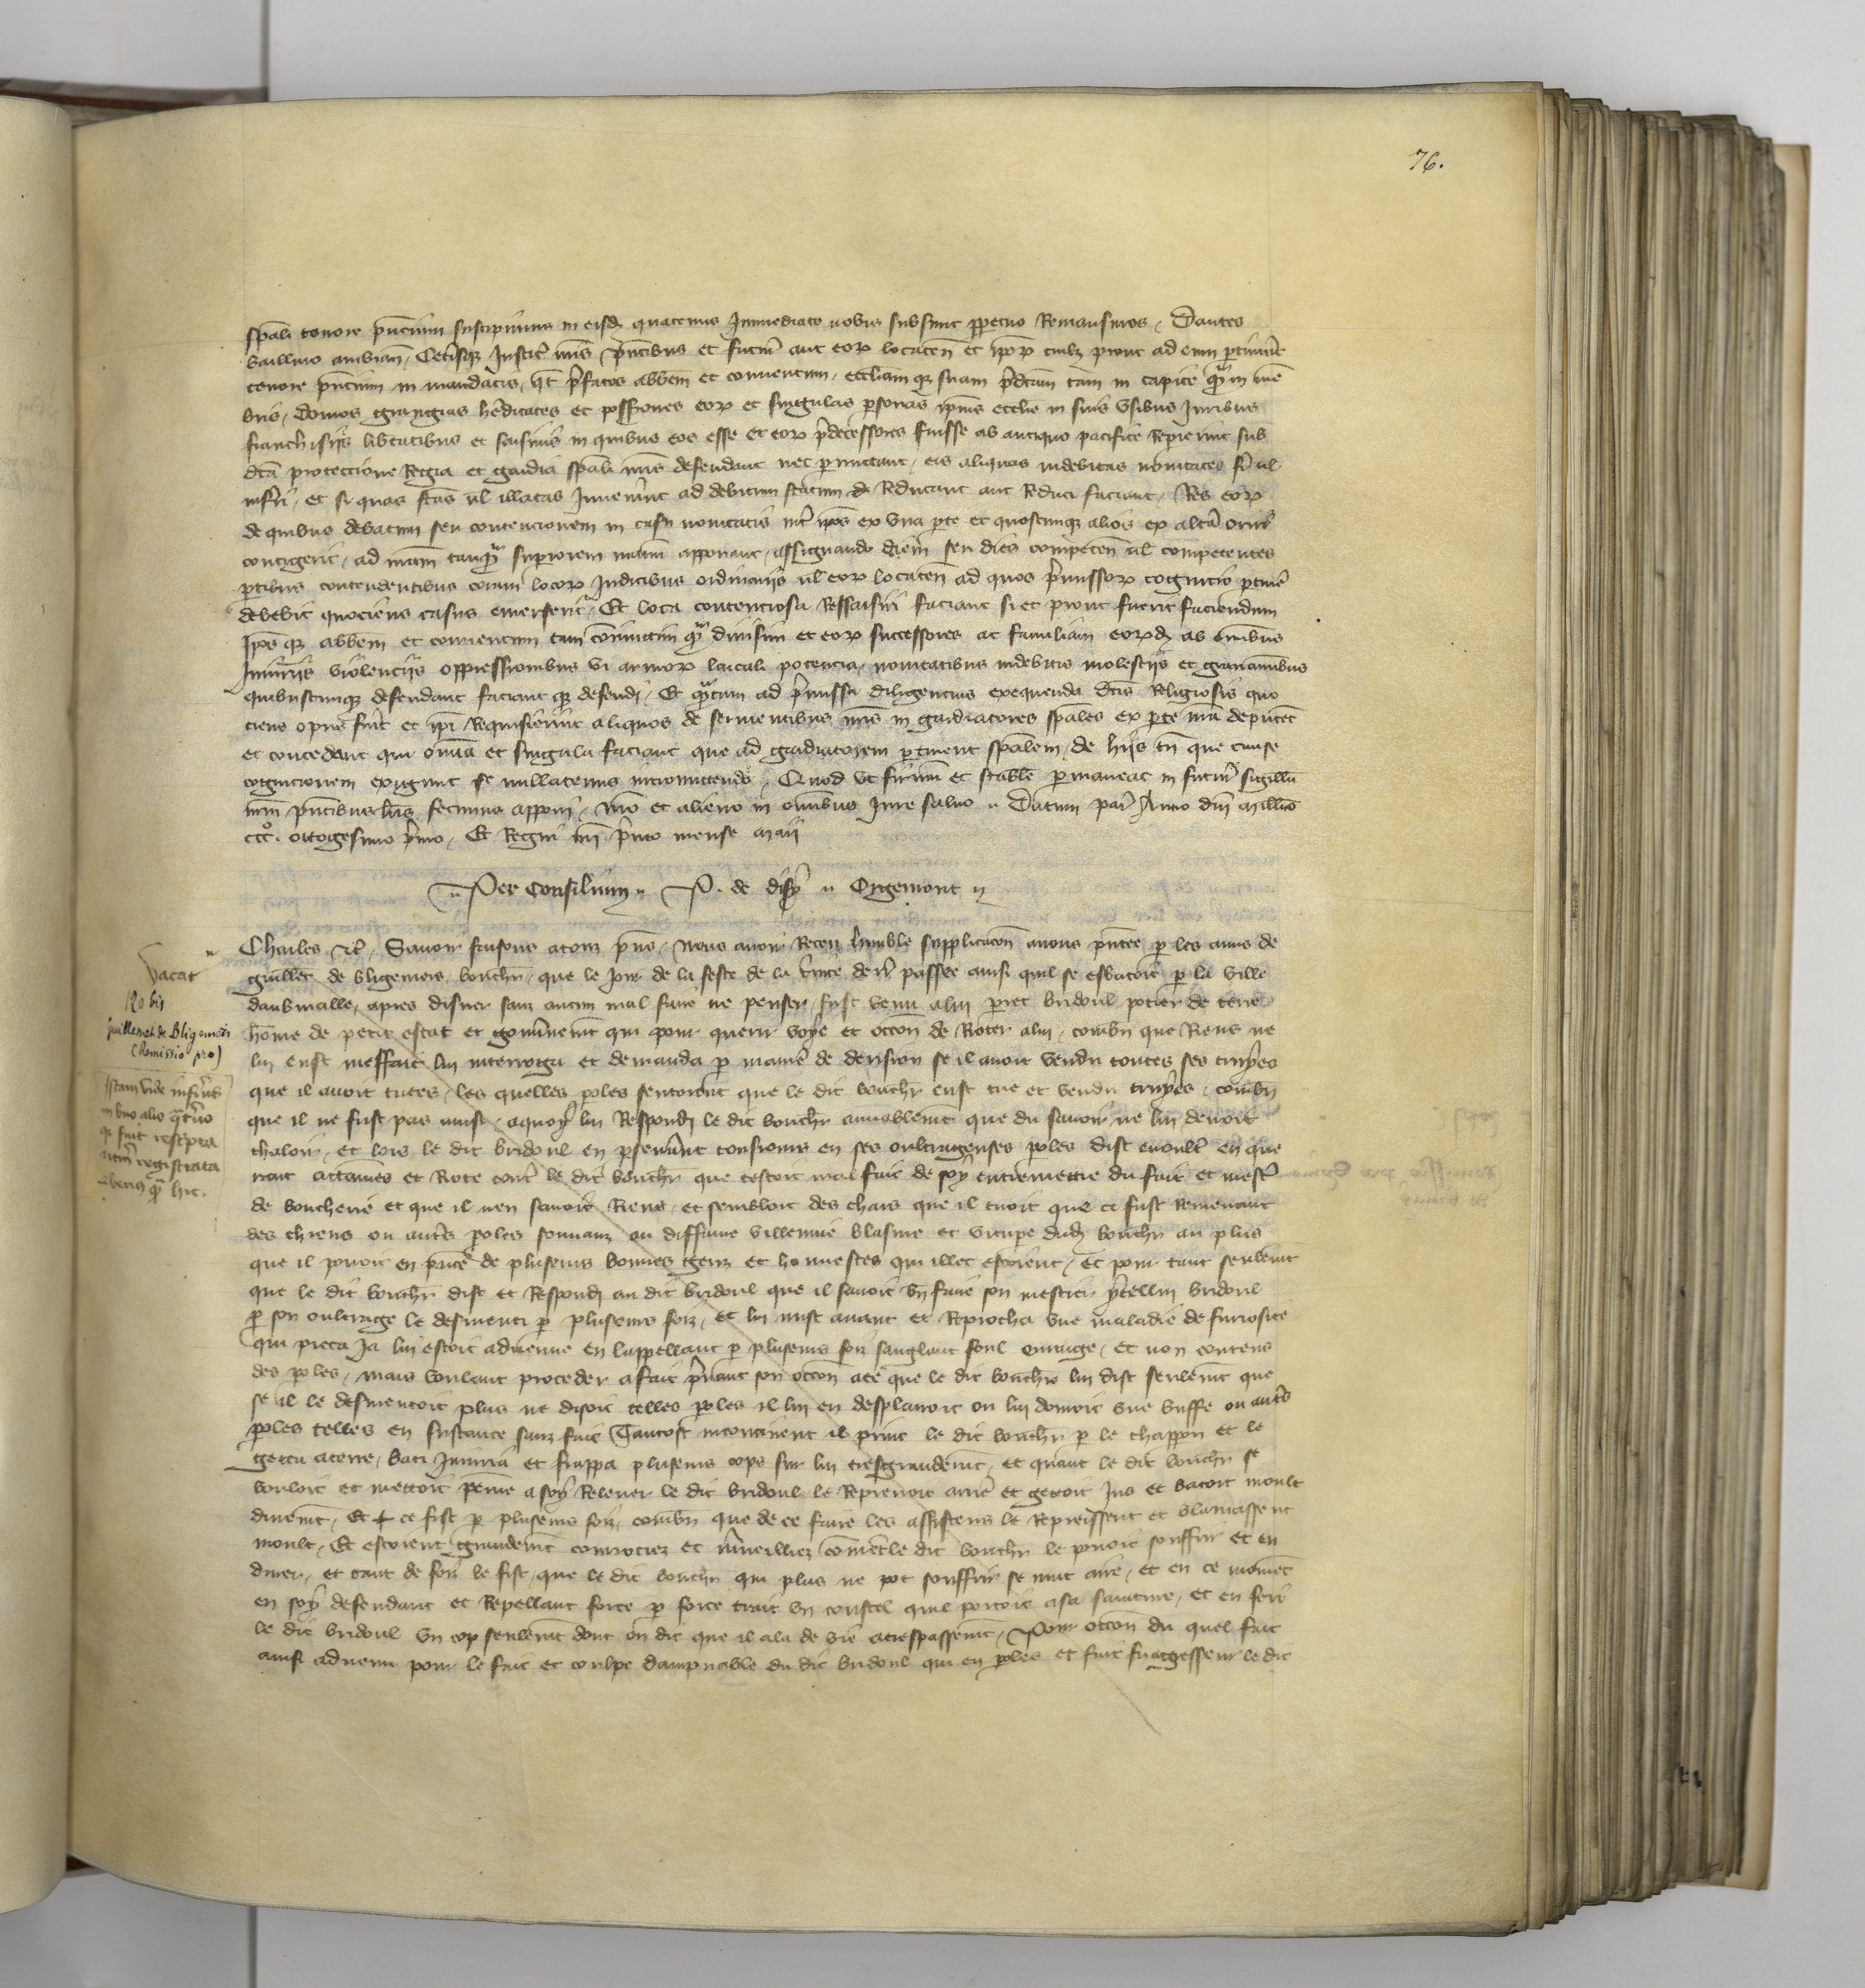 76.
spāli tenore pñcium suscipimus in eisd quatenus Immediate nobis subsint ppetuo Remansuros / Dantes
baillivo ambian / Ceterisq Justic nris pñtibus et futur aut eor locaten et ipor cuilz prout ad eum ptinuit
tenore pñcium in mandatis / qt prefatos abbem et conventum / eccliam qz suam pdcam tam in capite qm in mē
bris / domos grangias hereditates et possessiones eor et singulas psonas ipius ecclie in suis usibus Juribus
franchisiis libtatibus et saisinis in quibus eos esse et eor pdecessores fuisse ab antiquo pacifice Repierint sub
dcā proteccione Regia et gardia spāli nris defendant nec pmittant / eis aliquas indebitas novitates fi ul
infri / et si quas fcās ul illatas Invenint ad debitum statum Reducant aut Reduci faciant / Res eor
de quibus debatum seu contencionem in casu novitatis int ipos ex una pte et quoscunqz alios ex altā oriri
contigerit / ad mam tanq supiorem nram apponant / assignando diem seu dies competen ul competentes
ptibus contendentibus coram locor Judicibus ordinariis ul eor locaten ad quos pmissor cognicio ptine
debebit quociens casus emerserit / Et loca contenciosa Ressaisiri faciant si et prout fuerit faciendum
Ipos qz abbem et conventum tam coniunctim qm divisim et eor successores ac familiam eord ab omibus
Iniuriis violenciis oppressionibus vi armor laicali potencia / novitatibus indebitis molestiis et gravaminibus
quibuscunqz defendant faciant qz defendi / Et qtum ad pmissa diligencius exequenda dcis Religiosis quo
ciens opus fuit et ipi Requisierint aliquos de servientibus nris in gardiatores spāles ex pte nra deputet
et concedant qui omia et singula faciant que ad gardiatorem ptinent spālem / de hiis tn que cause
cognicionem exigunt se nullatenus intromittendo / Quod ut firmu et stabile pmaneat in futur sigillu
nrm pñtibus lris fecimus apponi / nro et alieno in omibus Jure salvo // Datum par Anno dni millio
ccco. octogesimo pmo / Et Regni nri pmo mense maii
// Per Consilium // P. de disy // Orgemont //
Vacat
120 bis
guillemet de Bligemois
(Remissio pro)
Istam vide infrius
in uno alio qterno
q fuit rescripta
ntm registrata
verius q hic.
Charles etc / Savoir faisons atouz pns / Nous avoir Receu humble supplicacon anous pntee p les amis de
guillet de bligemois bouchr / que le Jour de la feste de la trinite derr passee ainsi quil se esbatoit p la ville
daubmalle / apres disner sanz aucun mal faire ne penser / fust venu alui pret bridoul potier de terre
home de petit estat et gouvnemt qui pour querir voye et occon de Roter alui / combn que Riens ne
lui eust meffait lui interroga et demanda p manie de derision se il avoit vendu toutes ses truyes
que il avoit tuees / les quelles poles sentoient que le dit bouchr eust tue et vendu truyes / combn
que il ne fust pas ainsi / aquoy lui Respondi le dit bouchr amiablemt que du savoir ne lui devoit
chaloir / et lors le dit bridoul en psevant tousiours en ses oultrageuses poles dist en oult en que
rant attaines et Rote cont le dit bouchr que cestoit mal fait de soy entremettre du fait et mest
de boucherie et que il nen savoit Riens / et sembloit des chars que il tuoit que ce fust Remenant
des chiens ou autres poles sonnanz au diffame villennie blasme et vitupe dud bouchr au plus
que il povoit en pnce de plusieurs bonnes genz et honnestes qui illec estoient / Et pour tant seulemt
que le dit bouchr dist et Respondi au dit bridoul que il savoit bn faire son mestier ycellui bridoul
p son oultrage le desmenti p plusieurs foiz / et lui mist avant et Reprocha une maladie de furiosite
qui pieca Ja lui estoit advenue en lappellant p plusieurs foiz sanglant foul enrage / et non content
des poles / mais voulant proceder afait pnant son occon ace que le dit bouchr lui dist seulemt que
se il le desmentoit plus ne disoit telles poles il lui en desplairoit ou lui donroit une buffe ou autres
poles telles en sustance sanz faire Tantost incontinent il print le dit bouchr p le chappon et le
getta aterre / bati Iniuria et frappa plusieurs cops sur lui tresgrandemt / et quant le dit bouchr se
vouloit et mettoit peine asoy Relever le dit bridoul le Reprenoit arrie et gettoit Jus et batoit moult
duremt / Et ce fist p plusieurs foiz / combn que de ce faire les assistens le Repreissent et blamassent
moult / Et estoient grandemt courrociez et mveilliez comet le dit bouchr le povoit souffrir et en
durer / et tant de foiz le fist / que le dit bouchr qui plus ne pot souffrir se mut aire / et en ce momet
en soy defendant et Repellant force p force trait un coustel quil portoit asa sainture / et en feri
le dit bridoul un cop seulemt dont on dit que il ala de vie atrespassemt / Pour occon du quel fait
ainsi advenu pour le fait et coulpe dampnable du dit bridoul qui en poles et fait fu aggresseur le dit